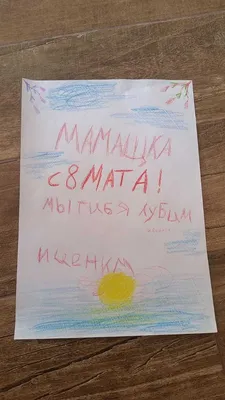 МАМАЩКА
С8МАТА!
МЫ ТИБЯ ЛУБИМ
И ЦЕНКМ